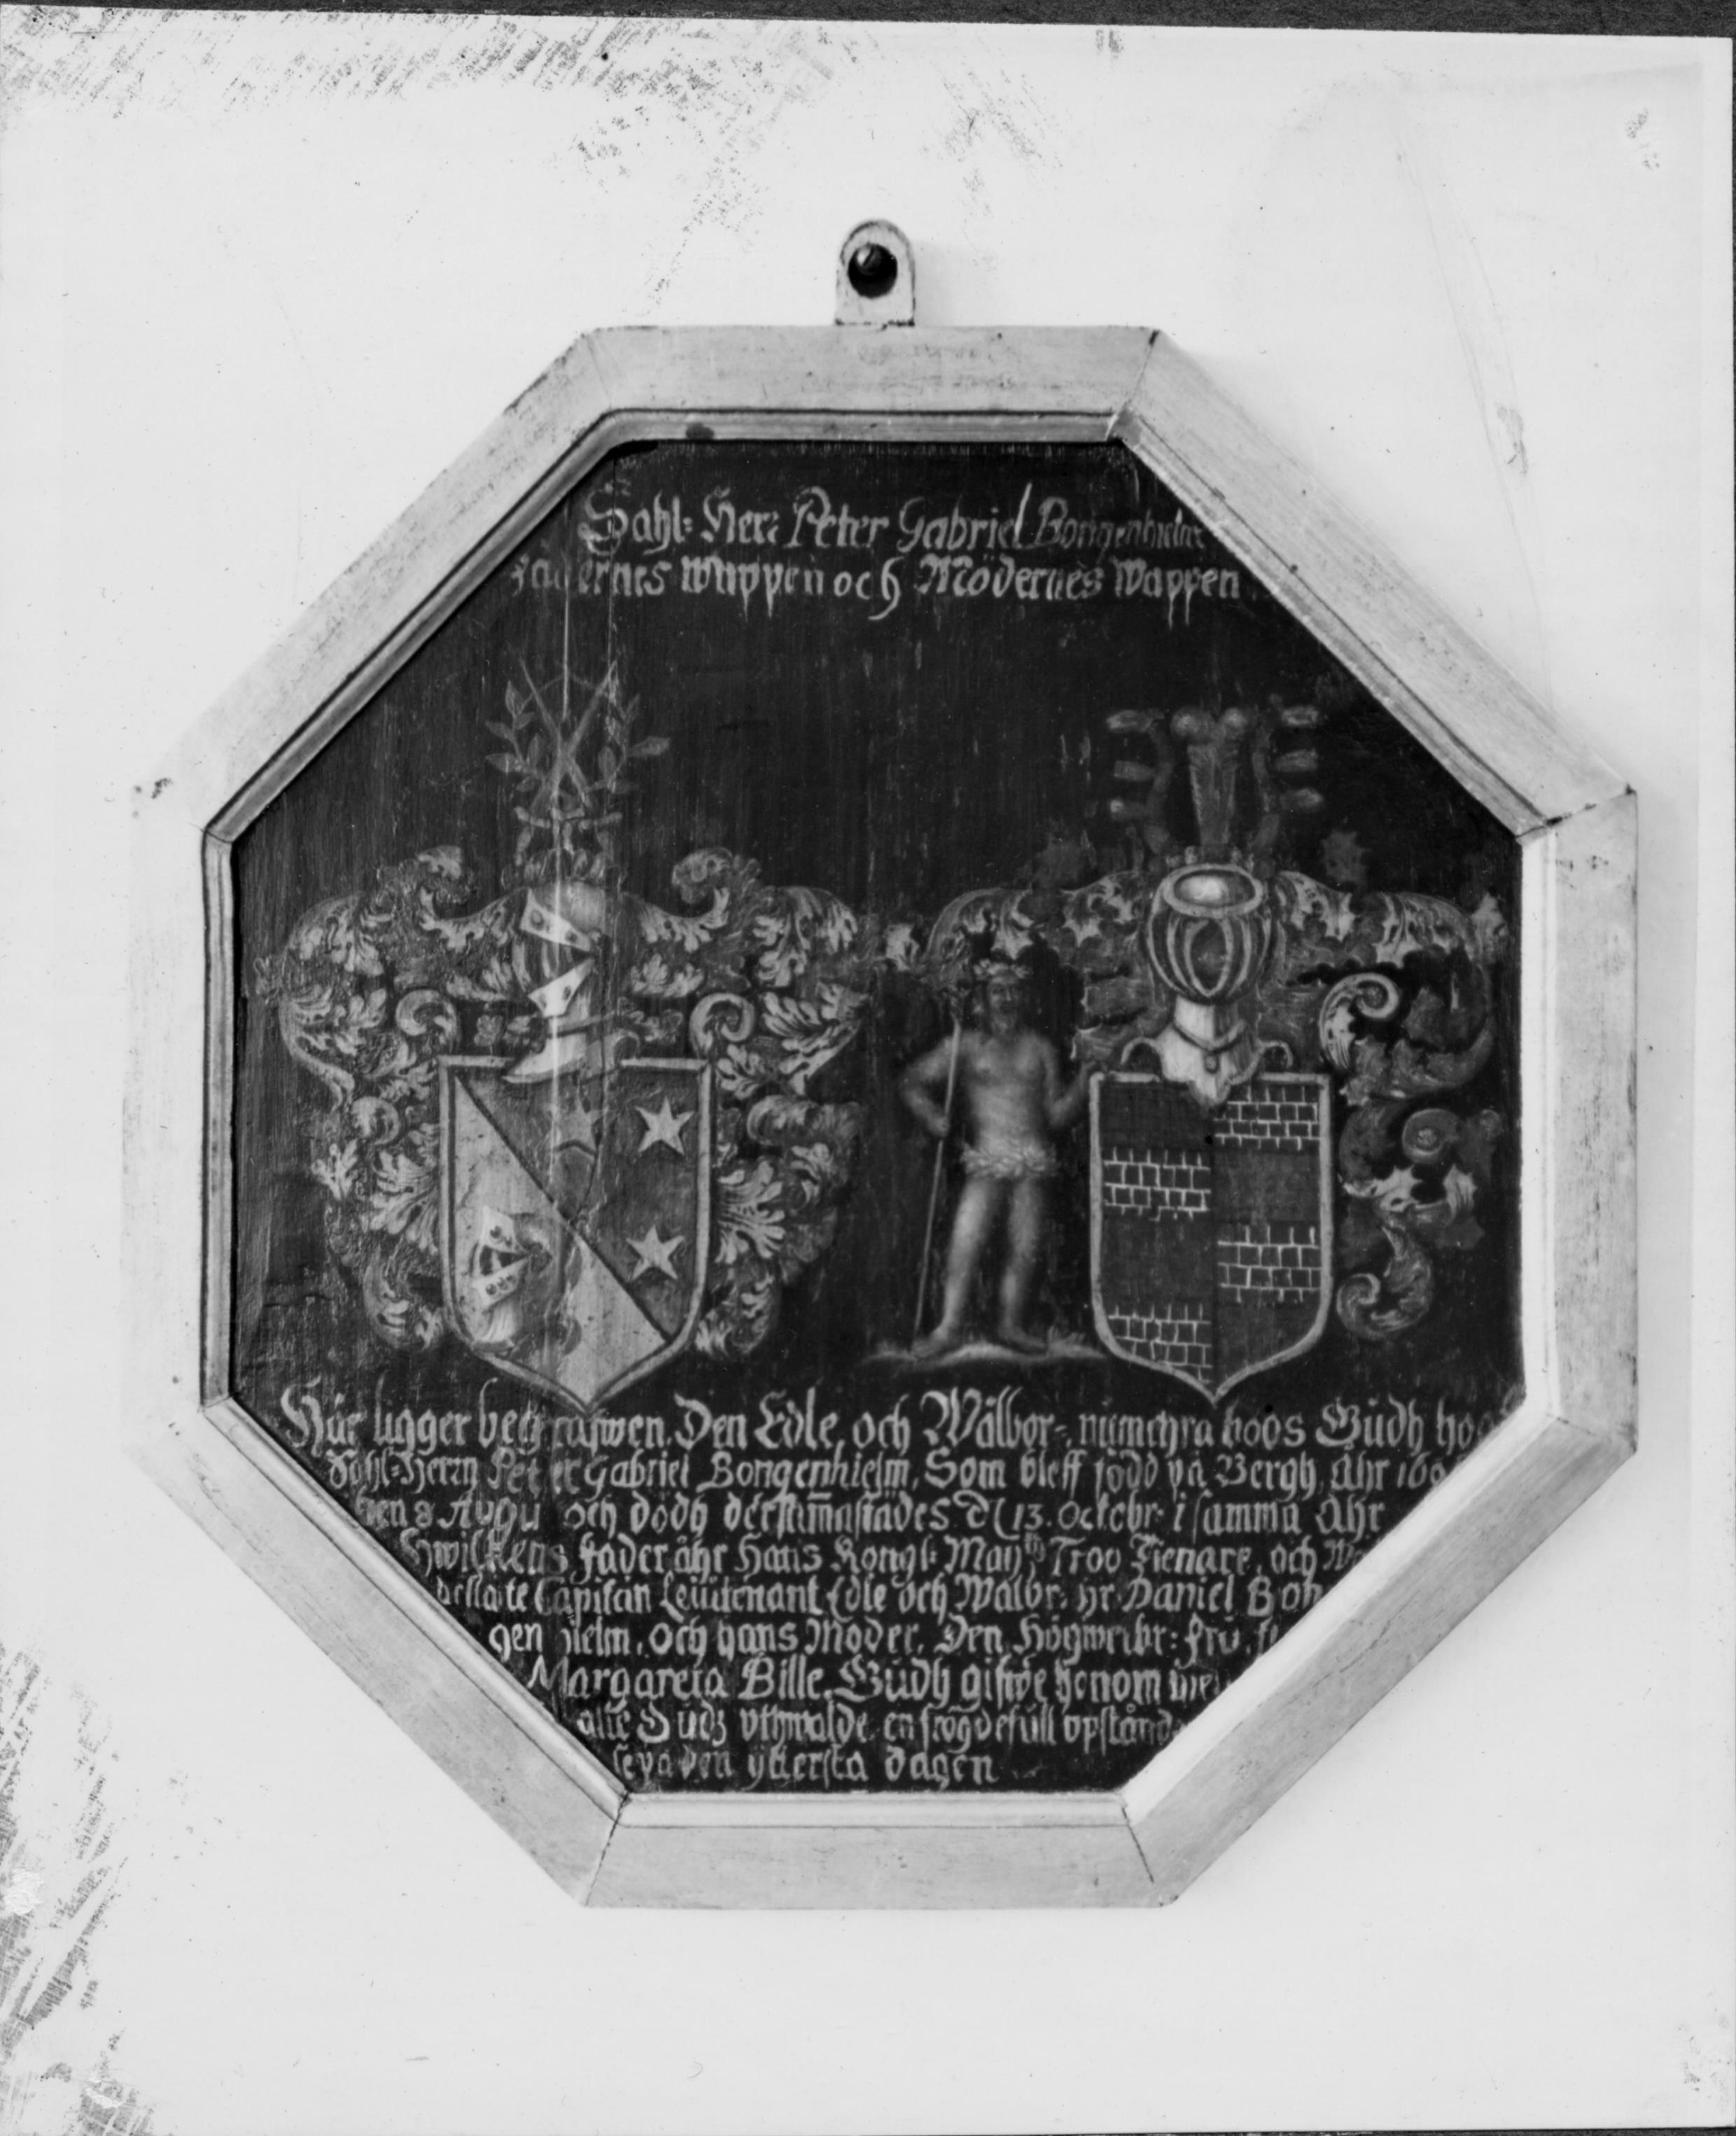 Sahl: Herr Peter Gabriel Bongenhielm
Fädernes Wappen och Mödernes Wappen
Här ligger begrafwen. Den Edle och Wälbor=, numehra hoos Gudh
Sahl: Herrn Peter Gabriel Bongenhielm, Som bleff född på Bergh, Ahr
den 8 Augu och dödh dersammastädes. d 13. Octobr: i samma Ahr
Hwilkens fader ähr Hans Kongl: May:tz Troo Tienare, och
bestalte Capitän Leutenant Edle och Wälbr: Hr Daniel Bon
genhielm, och hans Moder, Den Högwelbr: Fru,
Margareta Bille. Gudh gifwe honom
alle Gudz uthwalde en frögdefull opstånd
se på den ytersta dagen